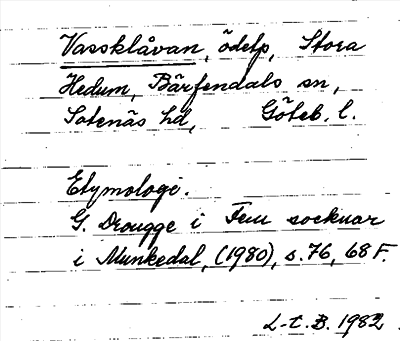 Vassklåvan, ödelp, Stora
Hedum, Bärfendals sn,
Sotenäs hd, Göteb. l.
Etymologi.
G. Drougge i Fem socknar
i Munkedal, (1980), s. 76, 68 F.
L-t. B. 1982